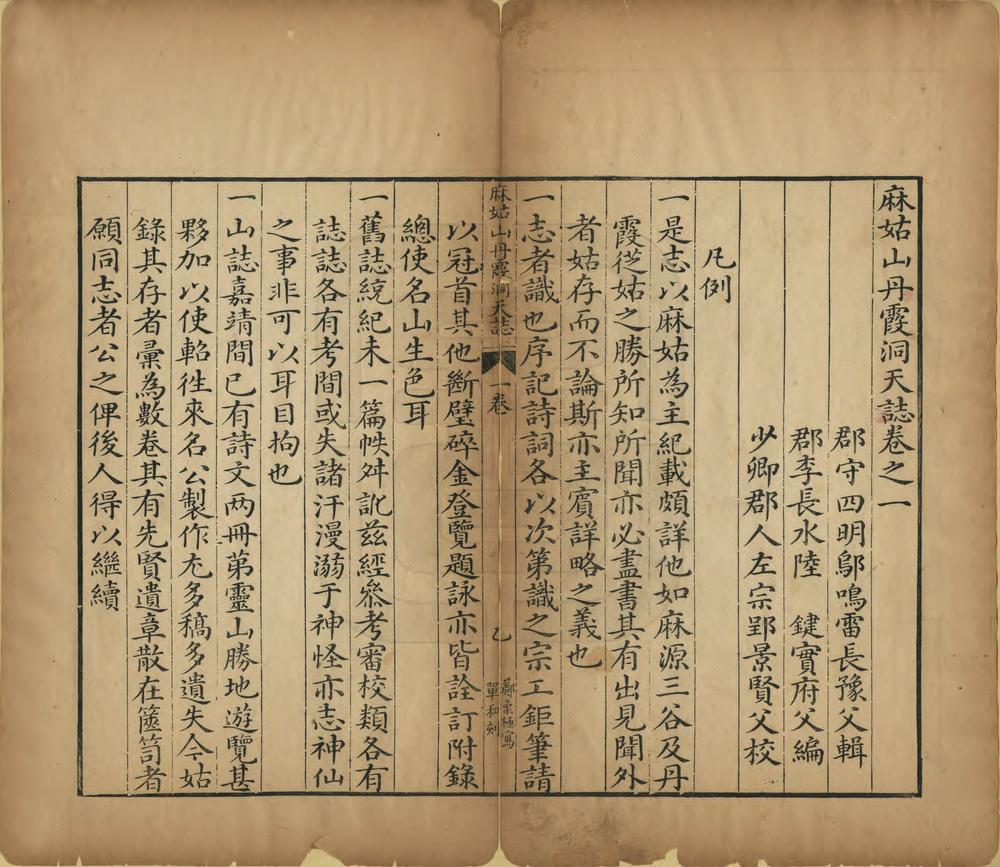 麻姑山丹霞洞天誌卷之一
郡守四明鄔鳴雷長豫父輯
郡李長水陸　鍵實府父編
少卿郡人左宗郢景賢父校
凡例
一是志以麻姑為主紀載頗詳他如麻源三谷及丹
霞從姑之勝所知所聞亦必盡書其有出見聞外
者姑存而不論斯亦主賓詳略之義也
一志者識也序記詩詞各以次第識之宗工鉅筆請
麻姑山丹霞洞天誌
一卷
乙
鄭象極寫
單和刻
以冠首其他斷璧碎金登覽題詠亦皆詮訂附錄
總使名山生色耳
一舊誌統紀未一篇帙舛訛茲經叅考審校類各有
誌誌各有考間或失諸汗漫溺于神怪亦志神仙
之事非可以耳目拘也
一山誌嘉靖間已有詩文两冊苐靈山勝地遊覽甚
夥加以使軺徃來名公製作尤多稿多遺失今姑
錄其存者彙為數卷其有先賢遺章散在篋笥者
願同志者公之俾後人得以繼續